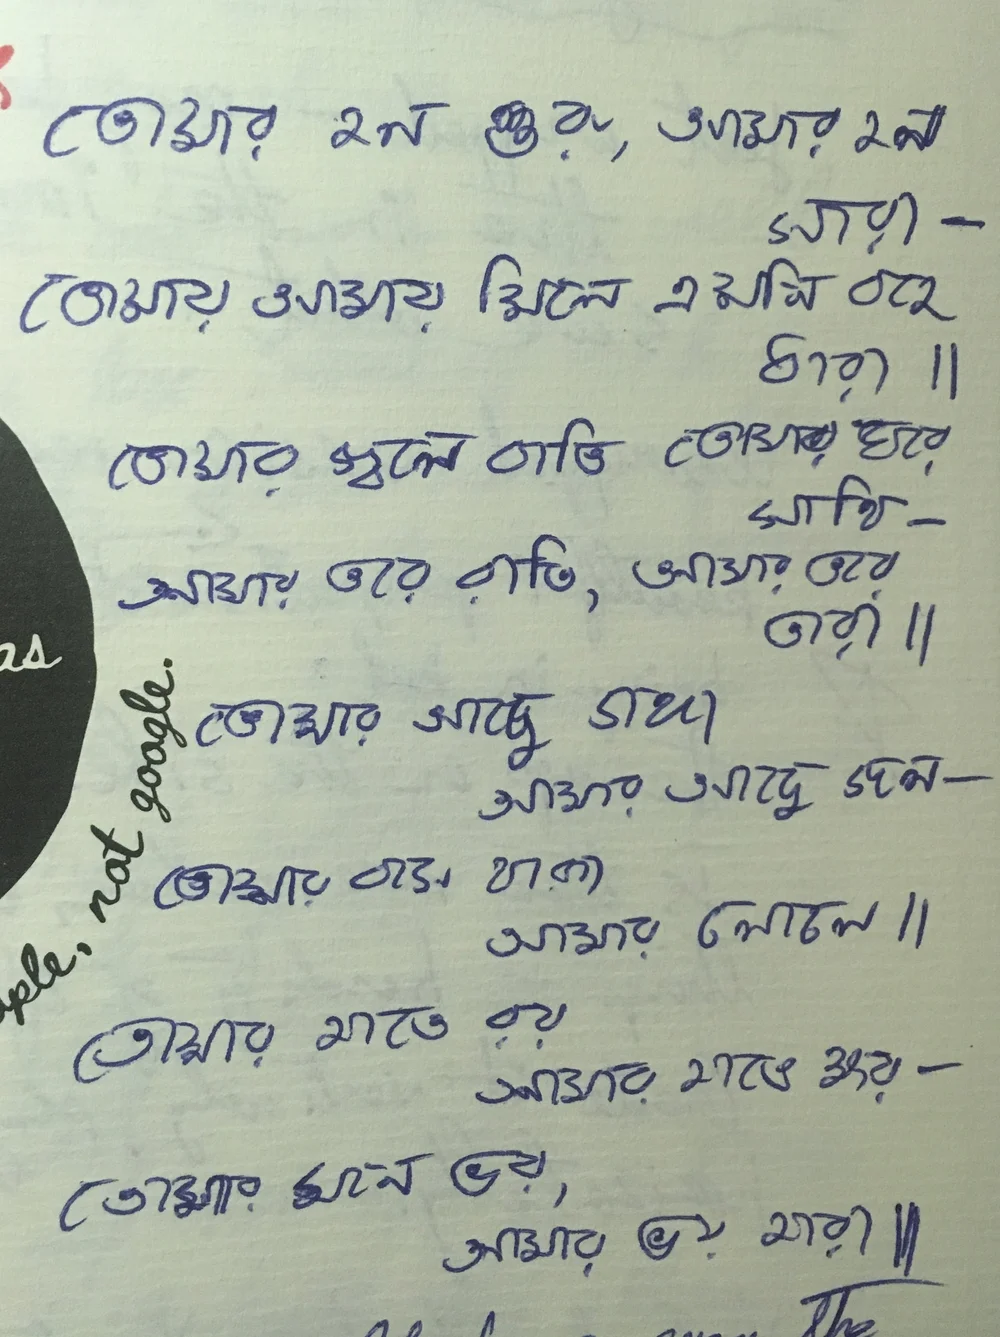 তোমার হল শুরু, আমার হল
সারা —
তোমায় আমায় মিলে এমনি বহে
ধারা ॥
তোমার জ্বলে বাতি তোমার ঘরে
সাথি —
আমার তরে রাতি, আমার তরে
তারা ॥
তোমার আছে ডাঙা
আমার আছে জল —
তোমার বসে থাকা
আমার চলাচল ॥
তোমার হাতে রয়
আমার হাতে ক্ষয় —
তোমার মনে ভয়,
আমার ভয় হারা ॥
as
ople, not google.
The